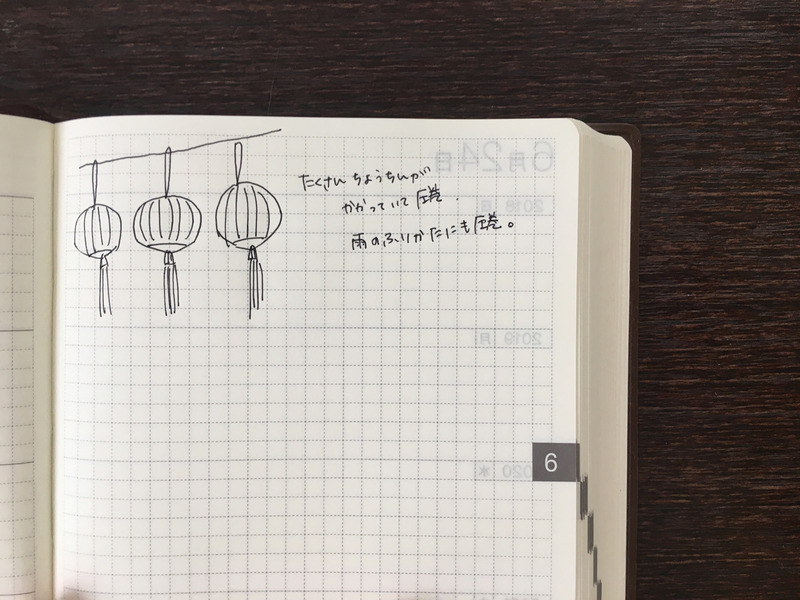 たくさんちょうちんが
かかっていて圧巻.
雨のふりかたにも圧巻。
6月24日
2018 日
2019 月
2020 水
6